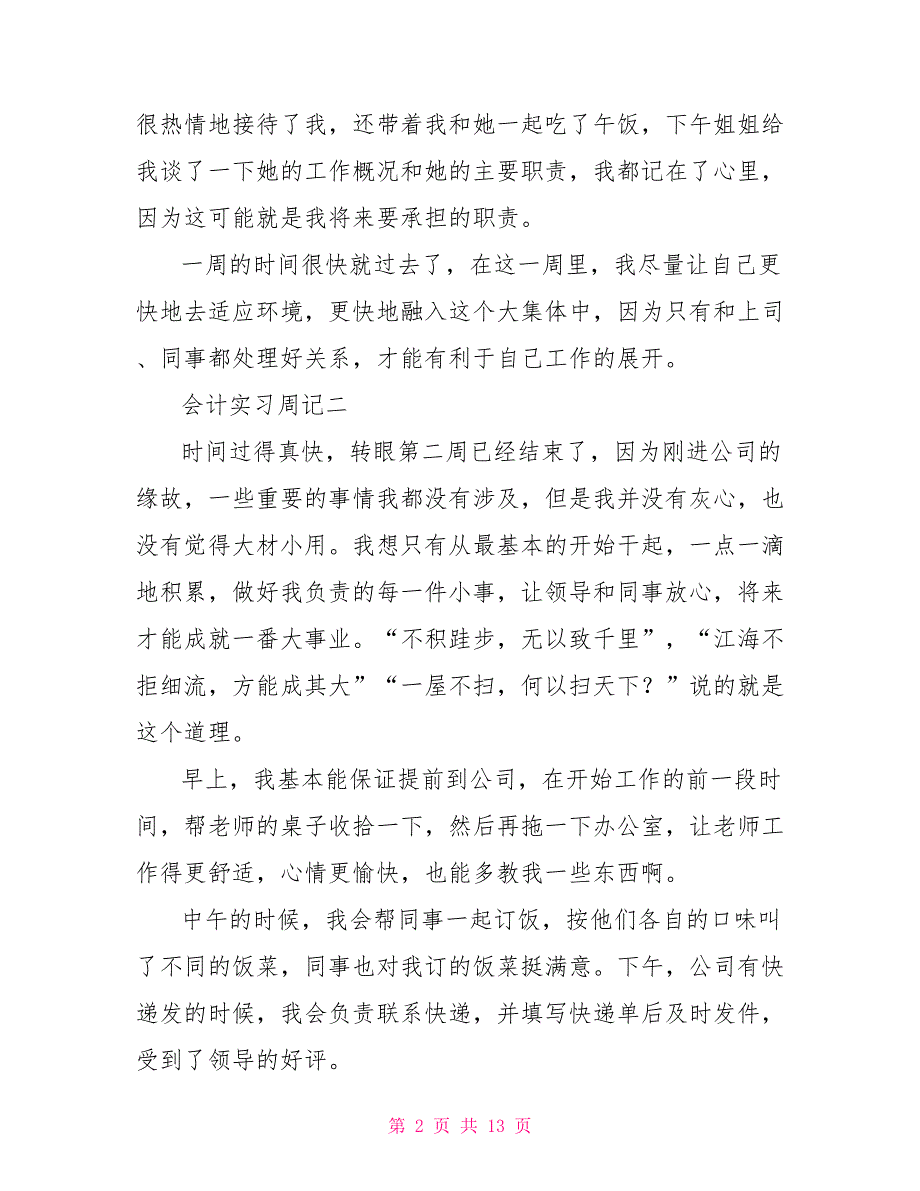 很热情地接待了我，还带着我和她一起吃了午饭，下午姐姐给
我谈了一下她的工作概况和她的主要职责，我都记在了心里，
因为这可能就是我将来要承担的职责。
一周的时间很快就过去了，在这一周里，我尽量让自己更
快地去适应环境，更快地融入这个大集体中，因为只有和上司
、同事都处理好关系，才能有利于自己工作的展开。
会计实习周记二
时间过得真快，转眼第二周已经结束了，因为刚进公司的
缘故，一些重要的事情我都没有涉及，但是我并没有灰心，也
没有觉得大材小用。我想只有从最基本的开始干起，一点一滴
地积累，做好我负责的每一件小事，让领导和同事放心，将来
才能成就一番大事业。“不积跬步，无以致千里”，“江海不
拒细流，方能成其大”“一屋不扫，何以扫天下？”说的就是
这个道理。
早上，我基本能保证提前到公司，在开始工作的前一段时
间，帮老师的桌子收拾一下，然后再拖一下办公室，让老师工
作得更舒适，心情更愉快，也能多教我一些东西啊。
中午的时候，我会帮同事一起订饭，按他们各自的口味叫
了不同的饭菜，同事也对我订的饭菜挺满意。下午，公司有快
递发的时候，我会负责联系快递，并填写快递单后及时发件，
受到了领导的好评。
第 2 页 共 13 页